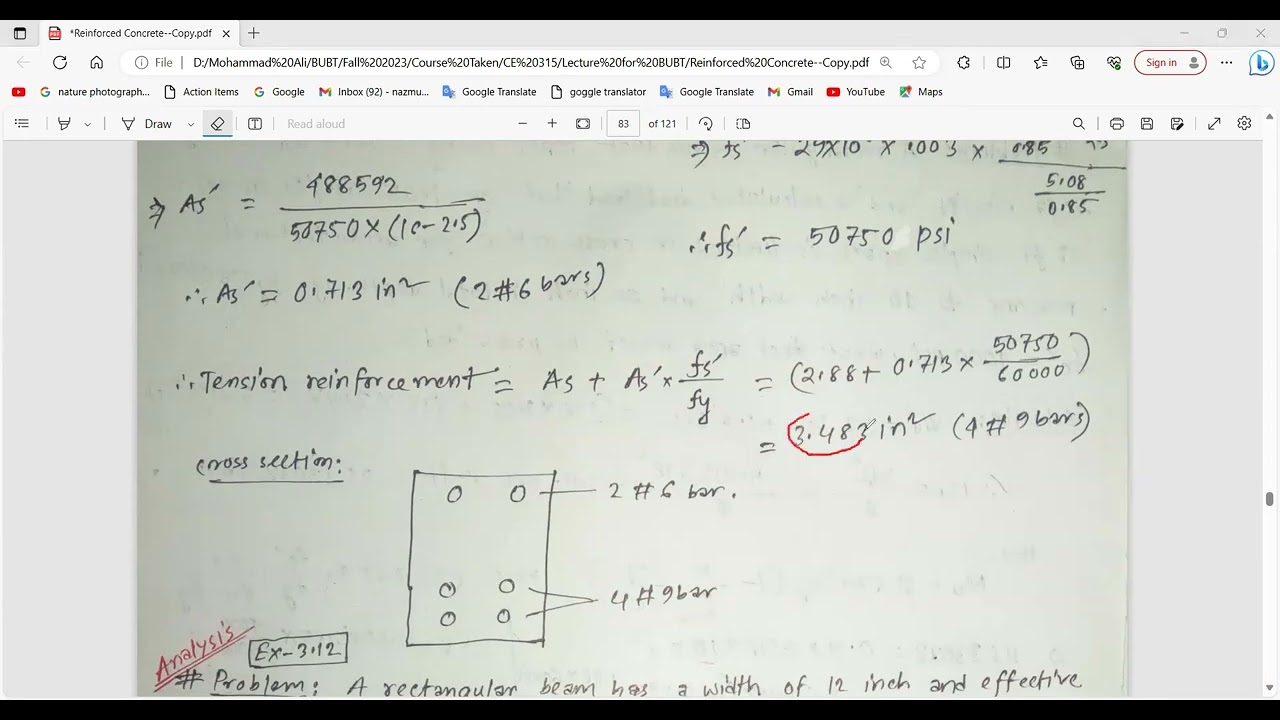 *Reinforced Concrete--Copy.pdf
File D:/Mohammad%20Ali/BUBT/Fall%202023/Course%20Taken/CE%20315/Lecture%20for%20BUBT/Reinforced%20Concrete--Copy.pdf Sign in
nature photograph... Action Items Google Inbox (92) - nazmu... Google Translate goggle translator Google Translate Gmail YouTube Maps
Draw Read aloud 83 of 121
⇒ fs' = 29×10 × .003 × 0.85
5.08
0.85
⇒ As' = 488592
50750×(16-2.5)
∴ fs' = 50750 psi
∴ As' = 0.713 in² (2#6 bars)
∴ Tension reinforcement = As + As' × fs'/fy = (2.88 + 0.713 × 50750/60000)
= 3.483 in² (4#9bars)
cross section:
2 #6 bar.
4 #9bar
Analysis
Ex-3.12
# Problem: A rectangular beam has a width of 12 inch and effective